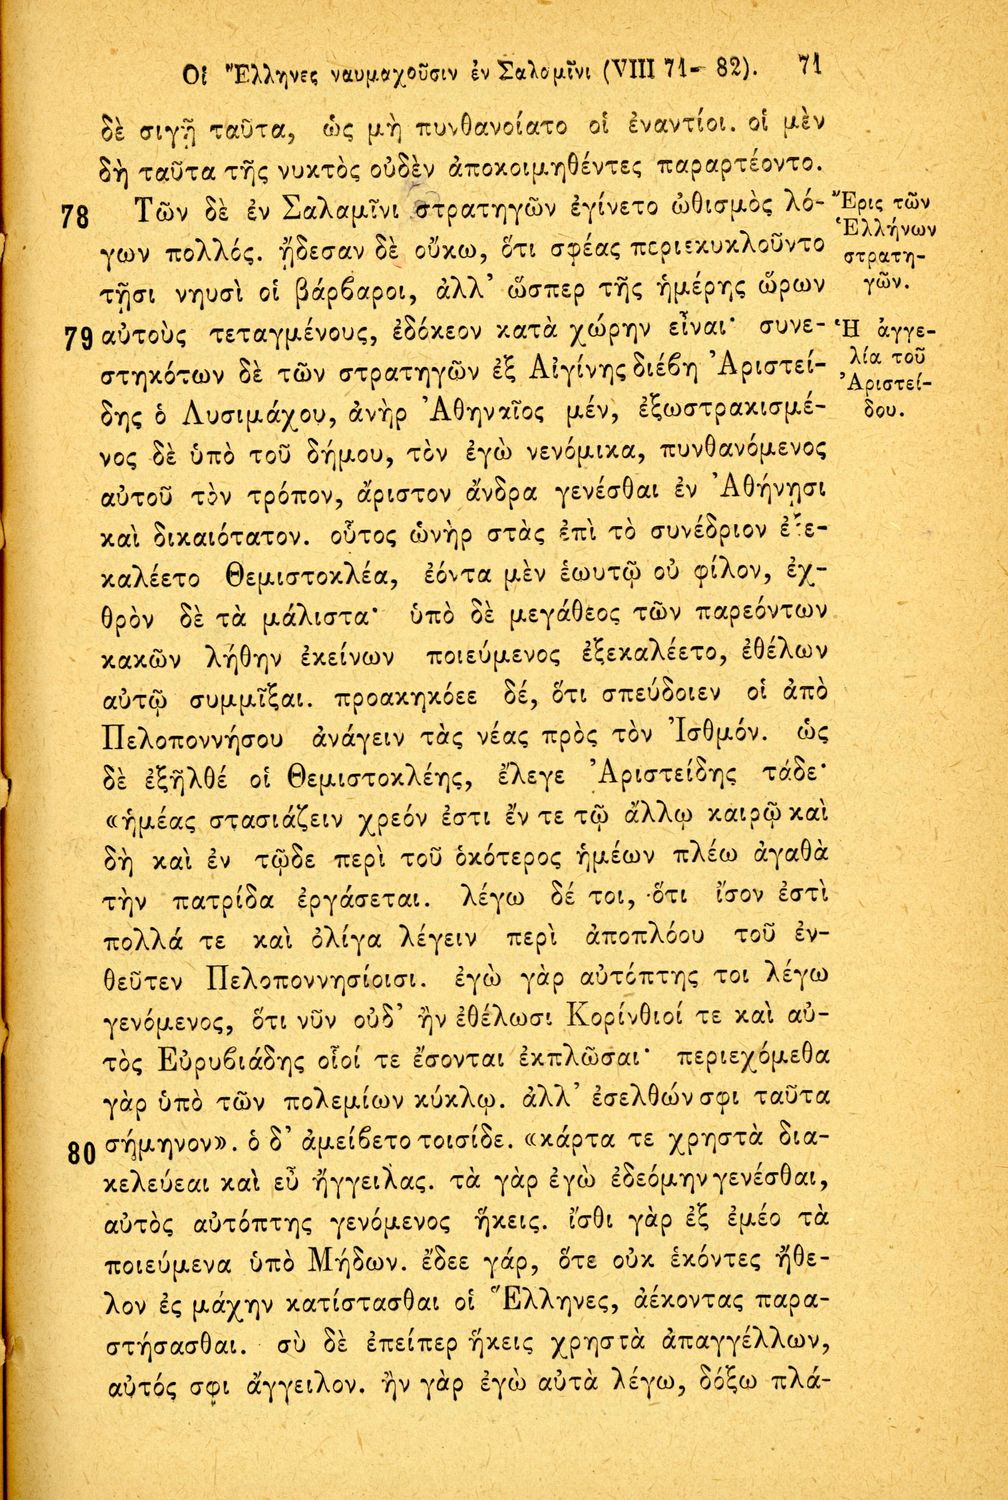 Οἱ Ἕλληνες ναυμαχοῦσιν ἐν Σαλαμῖνι (VIII 71- 82). 71
δὲ σιγῇ ταῦτα, ὡς μὴ πυνθανοίατο οἱ ἐναντίοι. οἱ μὲν
δὴ ταῦτα τῆς νυκτὸς οὐδὲν ἀποκοιμηθέντες παραρτέοντο.
78 Τῶν δὲ ἐν Σαλαμῖνι στρατηγῶν ἐγίνετο ὠθισμὸς λό-
γων πολλός. ᾔδεσαν δὲ οὔκω, ὅτι σφέας περιεκυκλοῦντο
τῇσι νηυσὶ οἱ βάρβαροι, ἀλλ' ὥσπερ τῆς ἡμέρης ὥρων
79 αὐτοὺς τεταγμένους, ἐδόκεον κατὰ χώρην εἶναι· συνε-
στηκότων δὲ τῶν στρατηγῶν ἐξ Αἰγίνης διέβη Ἀριστεί-
δης ὁ Λυσιμάχου, ἀνὴρ Ἀθηναῖος μέν, ἐξωστρακισμέ-
νος δὲ ὑπὸ τοῦ δήμου, τὸν ἐγὼ νενόμικα, πυνθανόμενος
αὐτοῦ τὸν τρόπον, ἄριστον ἄνδρα γενέσθαι ἐν Ἀθήνῃσι
καὶ δικαιότατον. οὗτος ὡνὴρ στὰς ἐπὶ τὸ συνέδριον ἐξε-
καλέετο Θεμιστοκλέα, ἐόντα μὲν ἑωυτῷ οὐ φίλον, ἐχ-
θρὸν δὲ τὰ μάλιστα· ὑπὸ δὲ μεγάθεος τῶν παρεόντων
κακῶν λήθην ἐκείνων ποιεύμενος ἐξεκαλέετο, ἐθέλων
αὐτῷ συμμῖξαι. προακηκόεε δέ, ὅτι σπεύδοιεν οἱ ἀπὸ
Πελοποννήσου ἀνάγειν τὰς νέας πρὸς τὸν Ἰσθμόν. ὡς
δὲ ἐξῆλθέ οἱ Θεμιστοκλέης, ἔλεγε Ἀριστείδης τάδε·
«ἡμέας στασιάζειν χρεόν ἐστι ἔν τε τῷ ἄλλῳ καιρῷ καὶ
δὴ καὶ ἐν τῷδε περὶ τοῦ ὁκότερος ἡμέων πλέω ἀγαθὰ
τὴν πατρίδα ἐργάσεται. λέγω δέ τοι, ὅτι ἴσον ἐστὶ
πολλά τε καὶ ὀλίγα λέγειν περὶ ἀποπλόου τοῦ ἐν-
θεῦτεν Πελοποννησίοισι. ἐγὼ γὰρ αὐτόπτης τοι λέγω
γενόμενος, ὅτι νῦν οὐδ' ἢν ἐθέλωσι Κορίνθιοί τε καὶ αὐ-
τὸς Εὐρυβιάδης οἷοί τε ἔσονται ἐκπλῶσαι· περιεχόμεθα
γὰρ ὑπὸ τῶν πολεμίων κύκλῳ. ἀλλ' ἐσελθών σφι ταῦτα
80 σήμηνον». ὁ δ' ἀμείβετο τοισίδε. «κάρτα τε χρηστὰ δια-
κελεύεαι καὶ εὖ ἤγγειλας. τὰ γὰρ ἐγὼ ἐδεόμην γενέσθαι,
αὐτὸς αὐτόπτης γενόμενος ἥκεις. ἴσθι γὰρ ἐξ ἐμέο τὰ
ποιεύμενα ὑπὸ Μήδων. ἔδεε γάρ, ὅτε οὐκ ἑκόντες ἤθε-
λον ἐς μάχην κατίστασθαι οἱ Ἕλληνες, ἀέκοντας παρα-
στήσασθαι. σὺ δὲ ἐπείπερ ἥκεις χρηστὰ ἀπαγγέλλων,
αὐτός σφι ἄγγειλον. ἢν γὰρ ἐγὼ αὐτὰ λέγω, δόξω πλά-
Ἔρις τῶν
Ἑλλήνων
στρατη-
γῶν.
Ἡ ἀγγε-
λία τοῦ
Ἀριστεί-
δου.